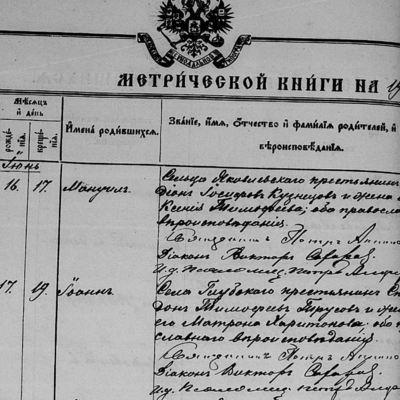 МЕТРИЧЕСКОЙ КНИГИ НА 19
Мѣсяцъ и день
рожденія.
крещенія.
Имена родившихся.
Званіе, имя, отчество и фамилія родителей, и
вѣроисповѣданія.
Іюнь
16. 17. Мануилъ.
Сельца Яковлевскаго крестьянинъ
діонъ Іосифовъ Кузнецовъ и жена
Ксенія Тимофеева; оба правосла
вѣроисповѣданія.
Священникъ Петръ
Діаконъ Викторъ
И. д. Псаломщ. Петръ
17. 19. Іоаннъ.
Села Глубокаго крестьянинъ Сп
донъ Тимофеевъ и же
его Матрона Харитонова; оба п
славнаго вѣроисповѣданія.
Священникъ Петръ
Діаконъ Викторъ
И. д. Псаломщ. Петръ